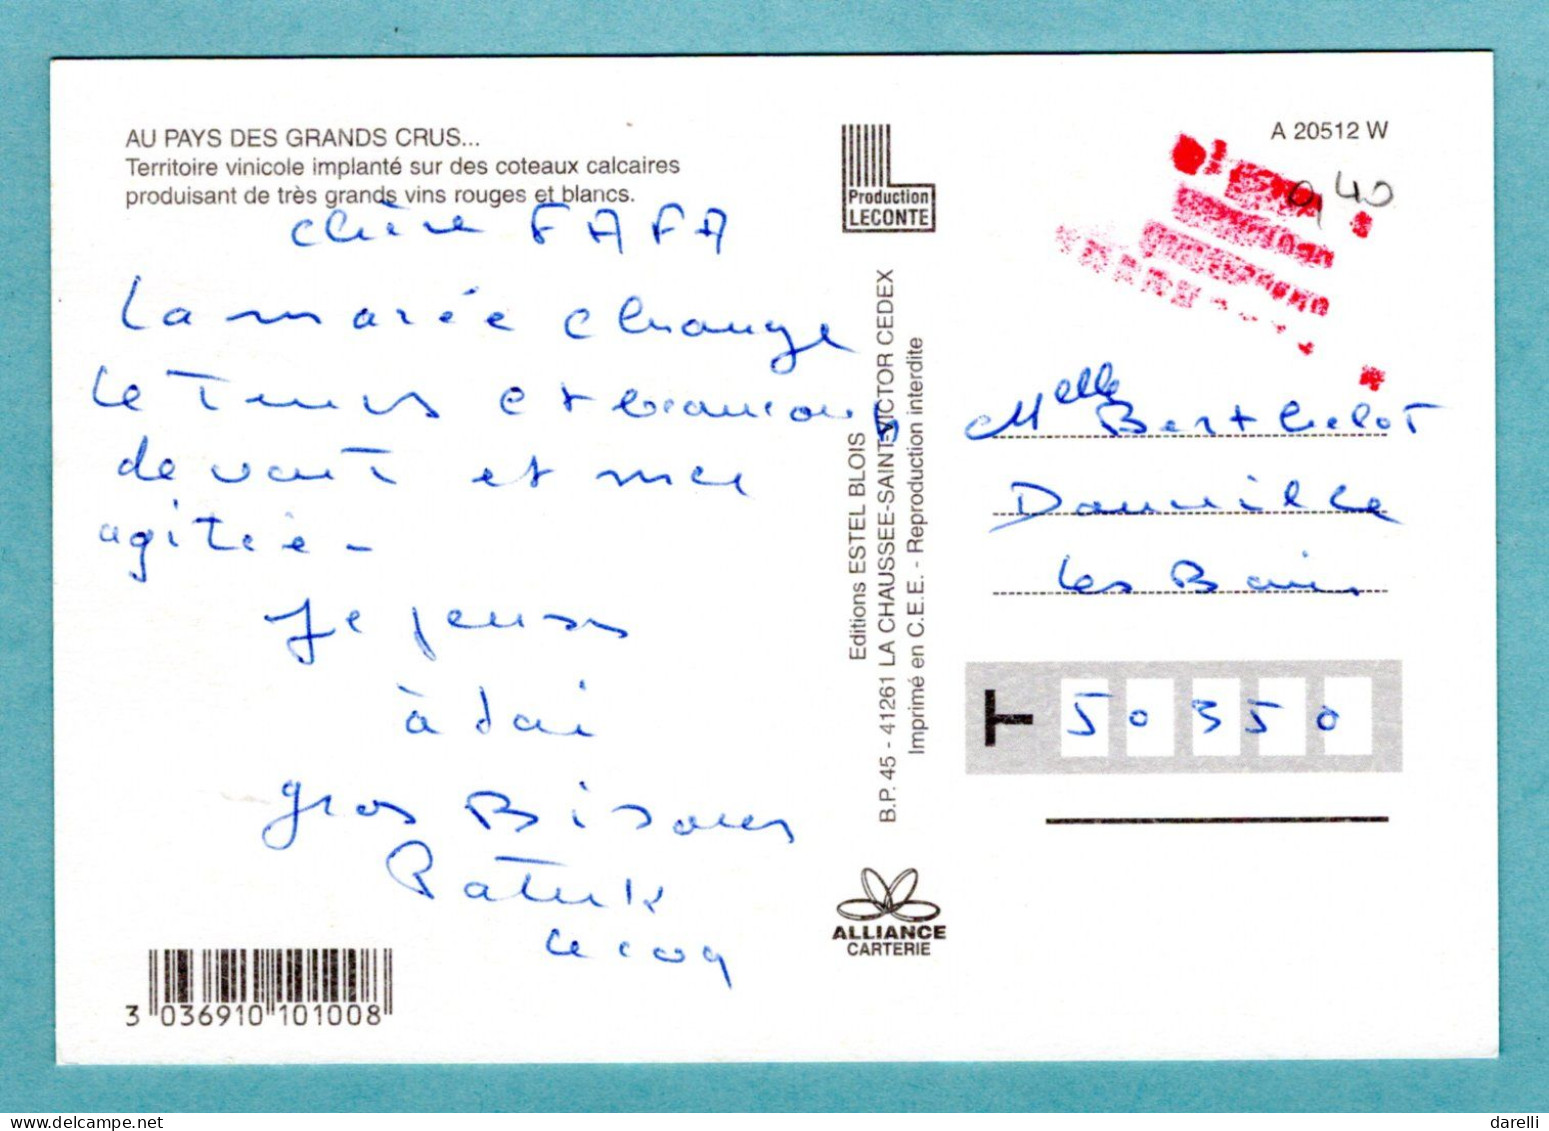 AU PAYS DES GRANDS CRUS...
Territoire vinicole implanté sur des coteaux calcaires
produisant de très grands vins rouges et blancs.
chère FAFA
La marée change
Le Temps et beaucoup
de vent et mer
agitée -
Je pense
à toi
gros Bisous
Patrick
Lecoq
3 036910 101008
Production
LECONTE
Editions ESTEL BLOIS
B.P. 45 - 41261 LA CHAUSSEE-SAINT-VICTOR CEDEX
Imprimé en C.E.E. - Reproduction interdite
ALLIANCE
CARTERIE
A 20512 W
0,40
Melle Berthelot
Donville
Les Bains
50350
darelli